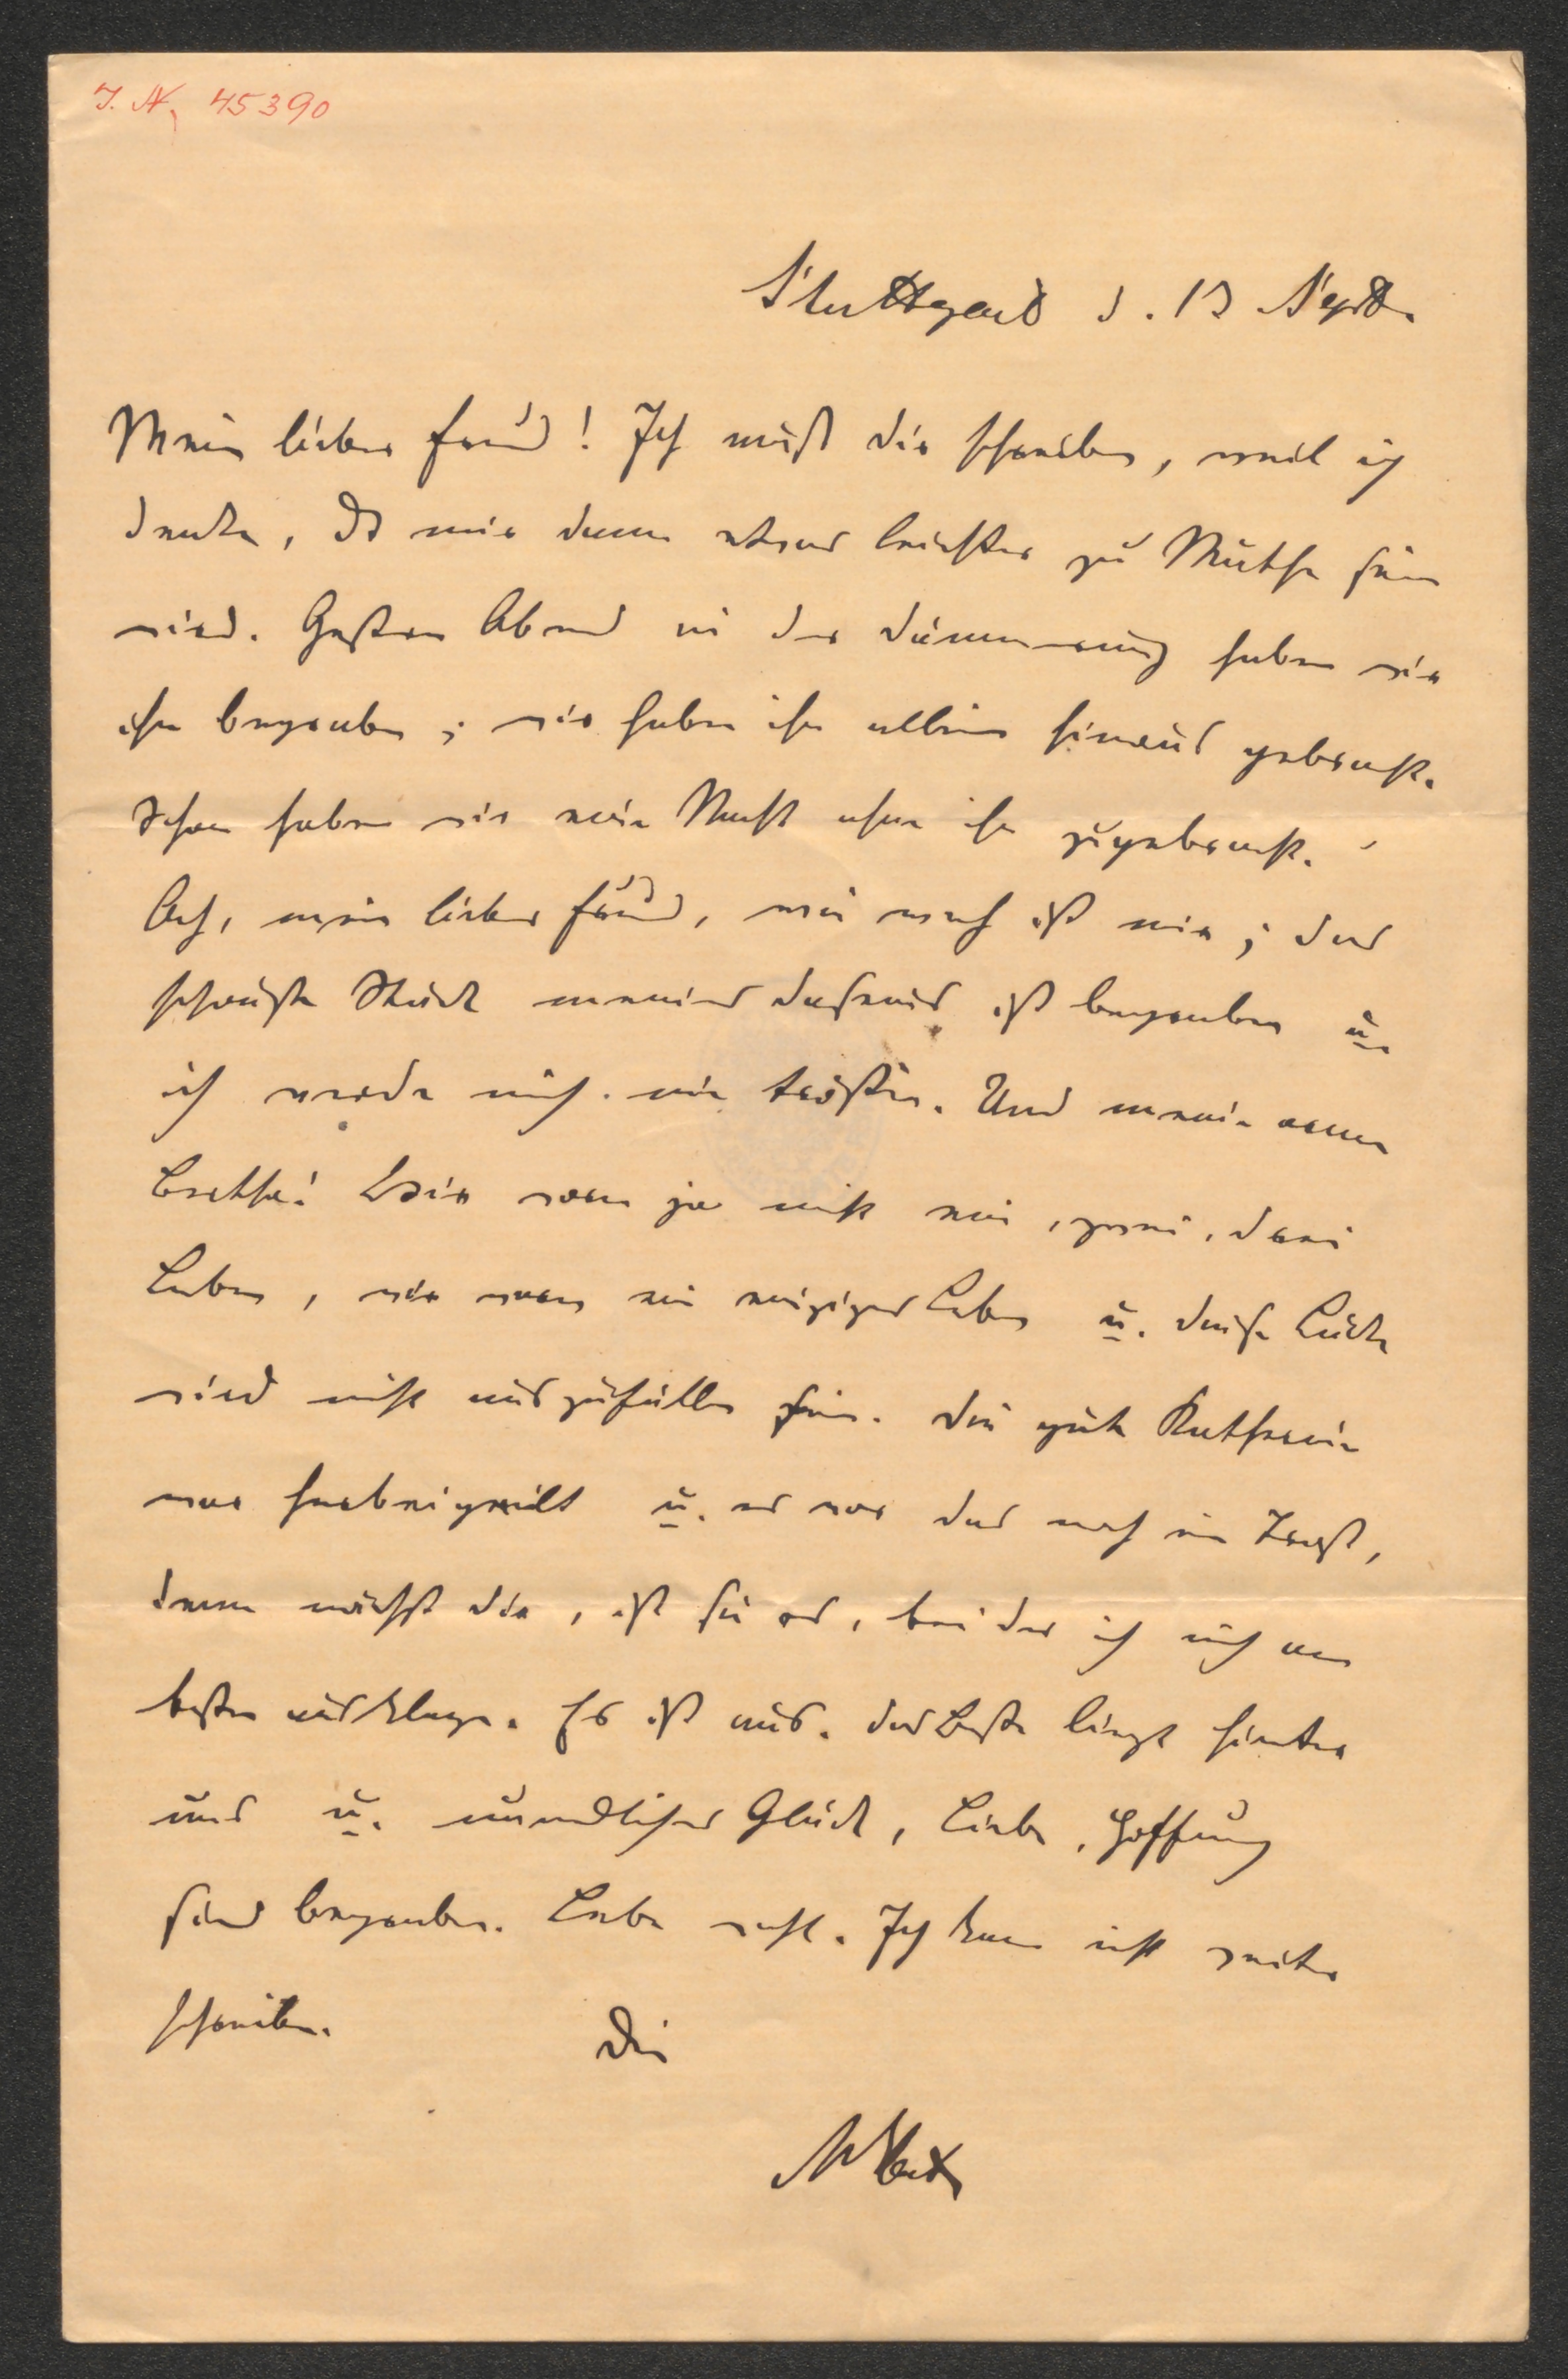 I. N. 45390
Stuttgard d. 13 Sept.
Mein lieber Freund! Ich muß dir schreiben, weil ich
denke, daß mir dann etwas leichter zu Muthe sein
wird. Gestern Abend in der Dämmerung haben wir
ihn begraben; wir haben ihn allein hinaus gebracht.
Schon haben wir eine Nacht ohne ihn zugebracht.
Ach, mein lieber Freund, wie weh ist mir; das
schönste Stück meines Daseins ist begraben u.
ich werde mich nie trösten. Und meine arme
Berthe! Wir waren ja nicht ein, zwei, drei
Leben, wir waren ein einziges Leben u. diese Lücke
wird nicht auszufüllen sein. Die gute Katharine
war herbeigeeilt u. es war das noch ein Trost,
denn nächst dir, ist sie es, bei der ich mich am
besten ausklage. Es ist aus. Das Beste liegt hinter
uns u. unendliches Glück, Liebe, Hoffnung
sind begraben. Lebe wohl. Ich kann nicht weiter
schreiben. Dein